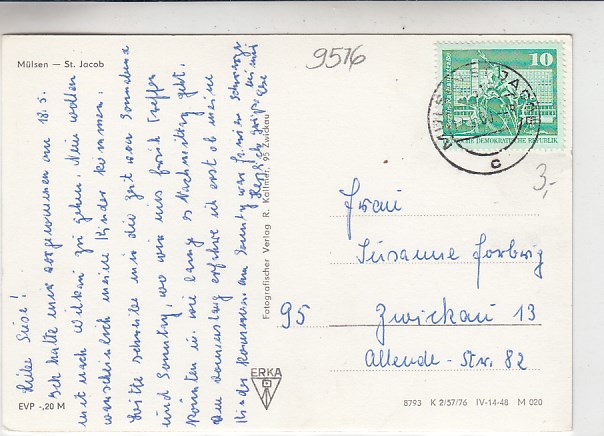 Mülsen — St. Jacob
9516
10
DEMOKRATISCHE REPUBLIK
c
3,-
Liebe Suse!
Ich hatte mir vorgenommen am 18.5.
mit nach Wilkau zu gehen. Nun wollen
wahrscheinlich meine Kinder kommen.
Bitte schreibe mir die Zeit von Sonnabend
und Sonntag, wo wir uns früh treffen
könnten u. wie lang es Nachmittag geht.
Am Donnerstag erfahre ich erst ob meine
Kinder kommen. am Sonntag war
Herzlich grüßt Dich
Fotografischer Verlag R. Kallmer, 95 Zwickau
Frau
Susanne Forbrig
95 Zwickau 13
Allende-Str. 82
ERKA
EVP -,20 M
8793 K 2/57/76 IV-14-48 M 020